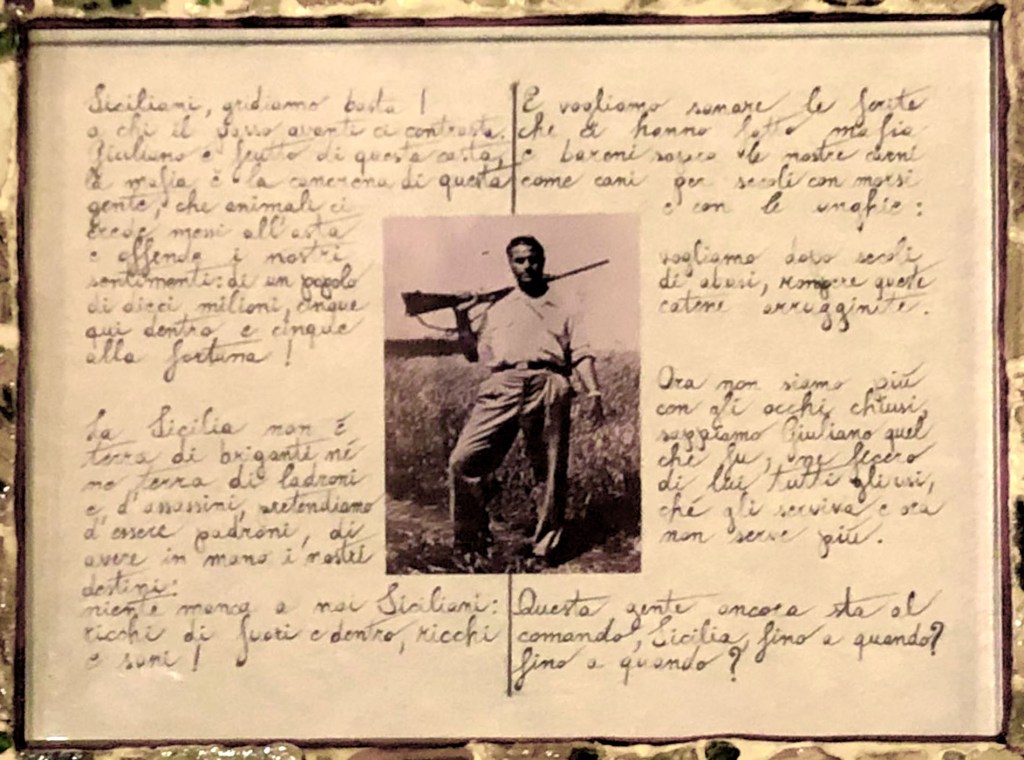 Siciliani, gridiamo basta !
a chi il passo avanti ci contrasta.
Giuliano è frutto di questa casta,
la mafia è la cancrena di questa
gente, che animali ci
crede messi all'asta
e offende i nostri
sentimenti: di un popolo
di dieci milioni, cinque
qui dentro e cinque
alla fortuna !
La Sicilia non è
terra di briganti né
no terra di ladroni
e d'assassini, pretendiamo
d'essere padroni, di
avere in mano i nostri
destini:
niente manca a noi Siciliani:
ricchi di fuori e dentro, ricchi
e sani !
E vogliamo sanare le ferite
che ci hanno fatto mafia
e baroni sopra le nostre carni
come cani per secoli con morsi
e con le unghie :
vogliamo dopo secoli
di abusi, rompere queste
catene arrugginite.
Ora non siamo più
con gli occhi chiusi,
sappiamo Giuliano quel
che fu, ne fecero
di lui tutti gli usi,
ché gli serviva e ora
non serve più.
Questa gente ancora sta al
comando, Sicilia, fino a quando?
fino a quando ?